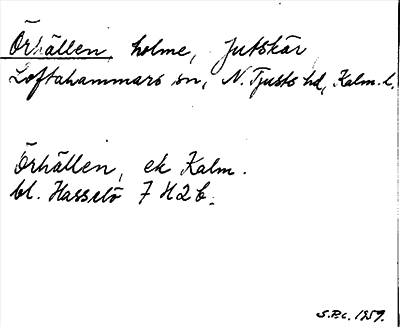 Örhällen, holme, Jutskär
Loftahammars sn, N. Tjusts hd, Kalm. l.
Örhällen, ek Kalm.
bl. Hasselö 7 H 2 b.
S.P.C. 1959.